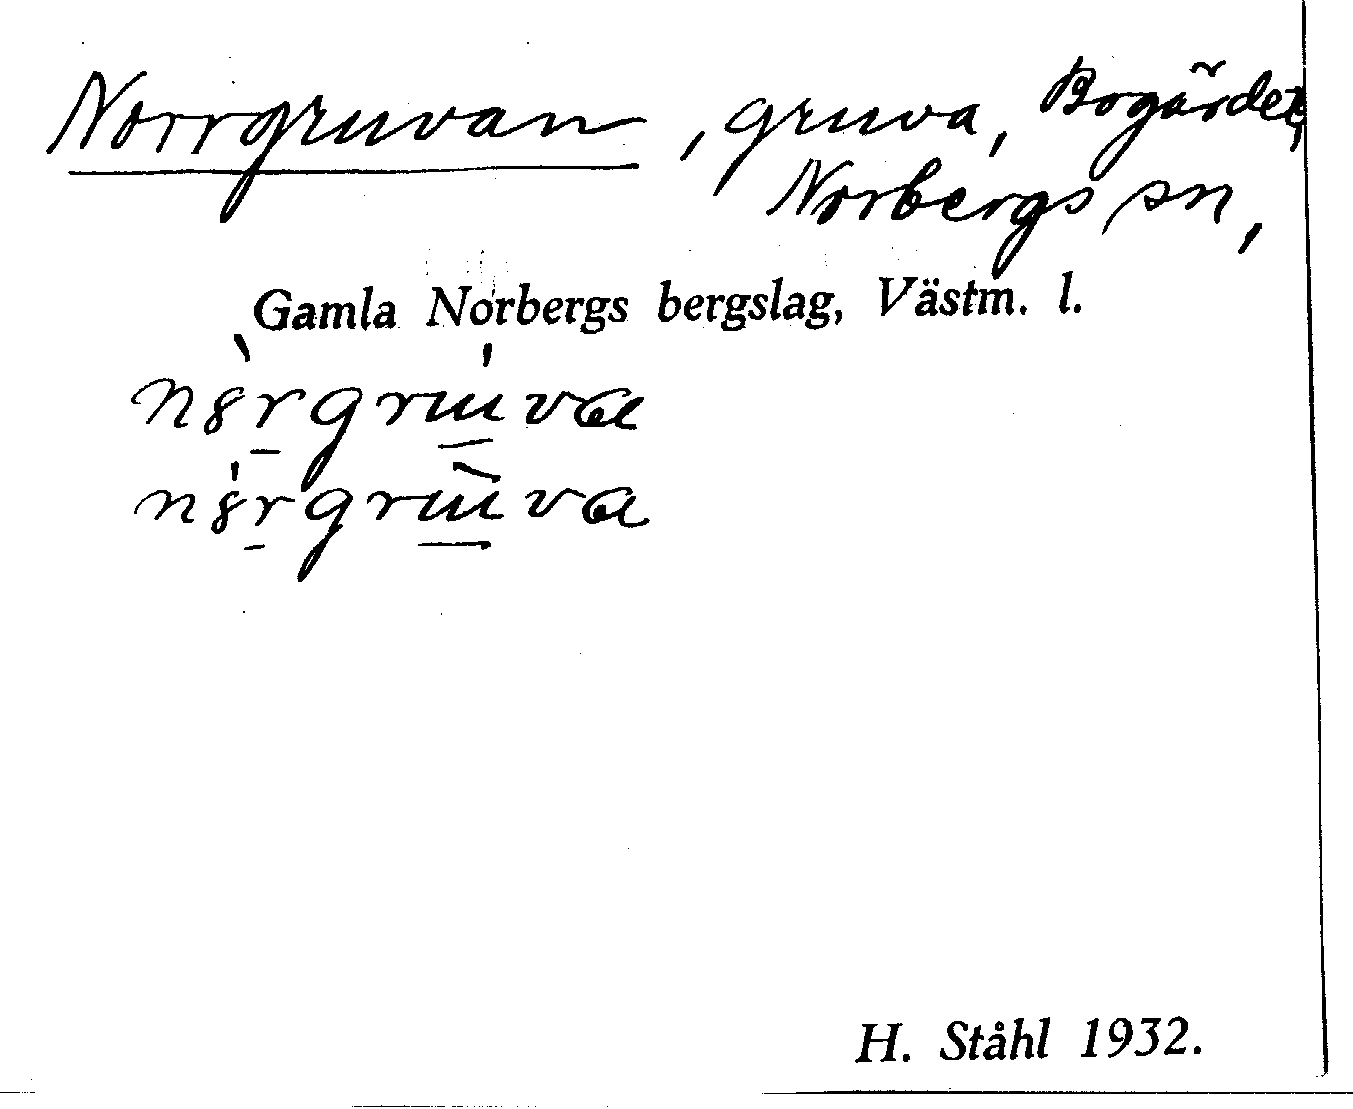 Norrgruvan, gruva, Bogärdet,
Norbergs sn,
Gamla Norbergs bergslag, Västm. l.
H. Ståhl 1932.